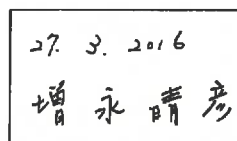 27. 3. 2016
增永晴彦